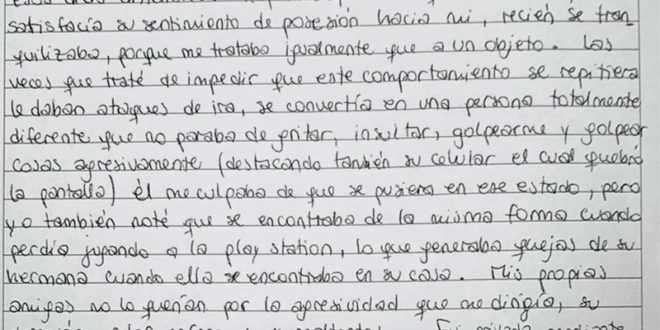 satisfacía su sentimiento de posesión hacia mi, recién se tran
quilizaba, porque me trataba igualmente que a un objeto. Las
veces que traté de impedir que este comportamiento se repitiera
le daban ataques de ira, se convertía en una persona totalmente
diferente que no paraba de gritar, insultar, golpearme y golpear
cosas agresivamente (destacando también su celular el cual quebró
la pantalla) él me culpaba de que se pusiera en ese estado, pero
yo también noté que se encontraba de la misma forma cuando
perdía jugando a la play station, lo que generaba quejas de su
hermana cuando ella se encontraba en su casa. Mis propias
amigas no lo querían por la agresividad que me dirigía, su